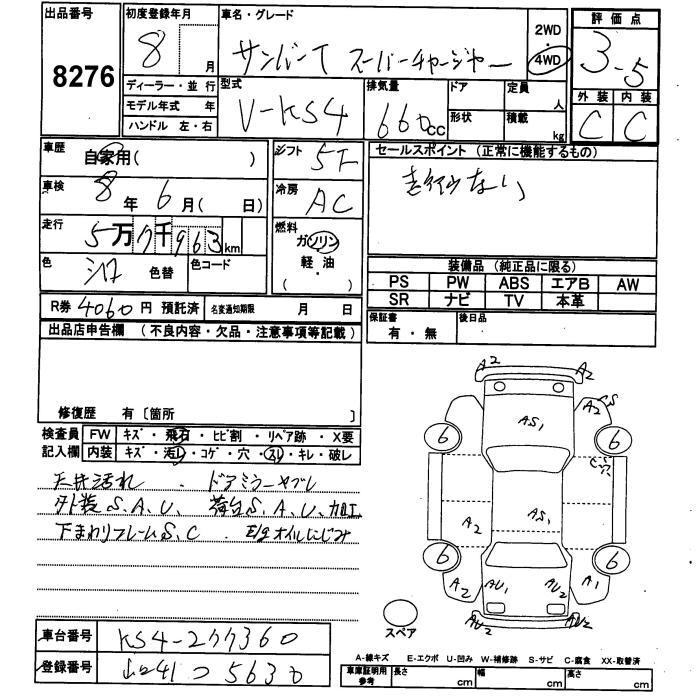 出品番号
8276
初度登録年月
8 月
ディーラー・並行
モデル年式 年
ハンドル 左・右
車名・グレード
サンバーT スーパーチャージャー
2WD
4WD
評価点
3.5
外装 内装
C C
型式
V-KS4
排気量
660cc
ドア
形状
定員
人
積載
kg
車歴
自家用( )
車検
8年6月( 日)
走行
5万7千963km
色
シロ 色替
色コード
シフト
5F
冷房
AC
燃料
ガソリン
軽・油
( )
セールスポイント (正常に機能するもの)
走行少ない
装備品 (純正品に限る)
PS PW ABS エアB AW
SR ナビ TV 本革
R券 4060円 預託済
名変通知期限 月 日
保証書
有・無
後日品
出品店申告欄 (不良内容・欠品・注意事項等記載)
修復歴 有〔箇所 〕
検査員
記入欄
FW キズ・飛石・ヒビ割・リペア跡・X要
内装 キズ・汚れ・コゲ・穴・スレ・キレ・破レ
天井汚れ . ドアミラーヤブレ
外装S.A.U. 荷台S.A.U.加工
下まわりフレームS.C . E/gオイルにじみ
車台番号
KS4-277360
登録番号
山口41つ5630
A2 A2
A2 S
AS1
6 6
A2
AS1
6 6
A2 AU1 AU2 A1
AU2 AU2
スペア
A-線キズ E-エクボ U-凹み W-補修跡 S-サビ C-腐食 XX-取替済
車庫証明用
参考
長さ cm
幅 cm
高さ cm